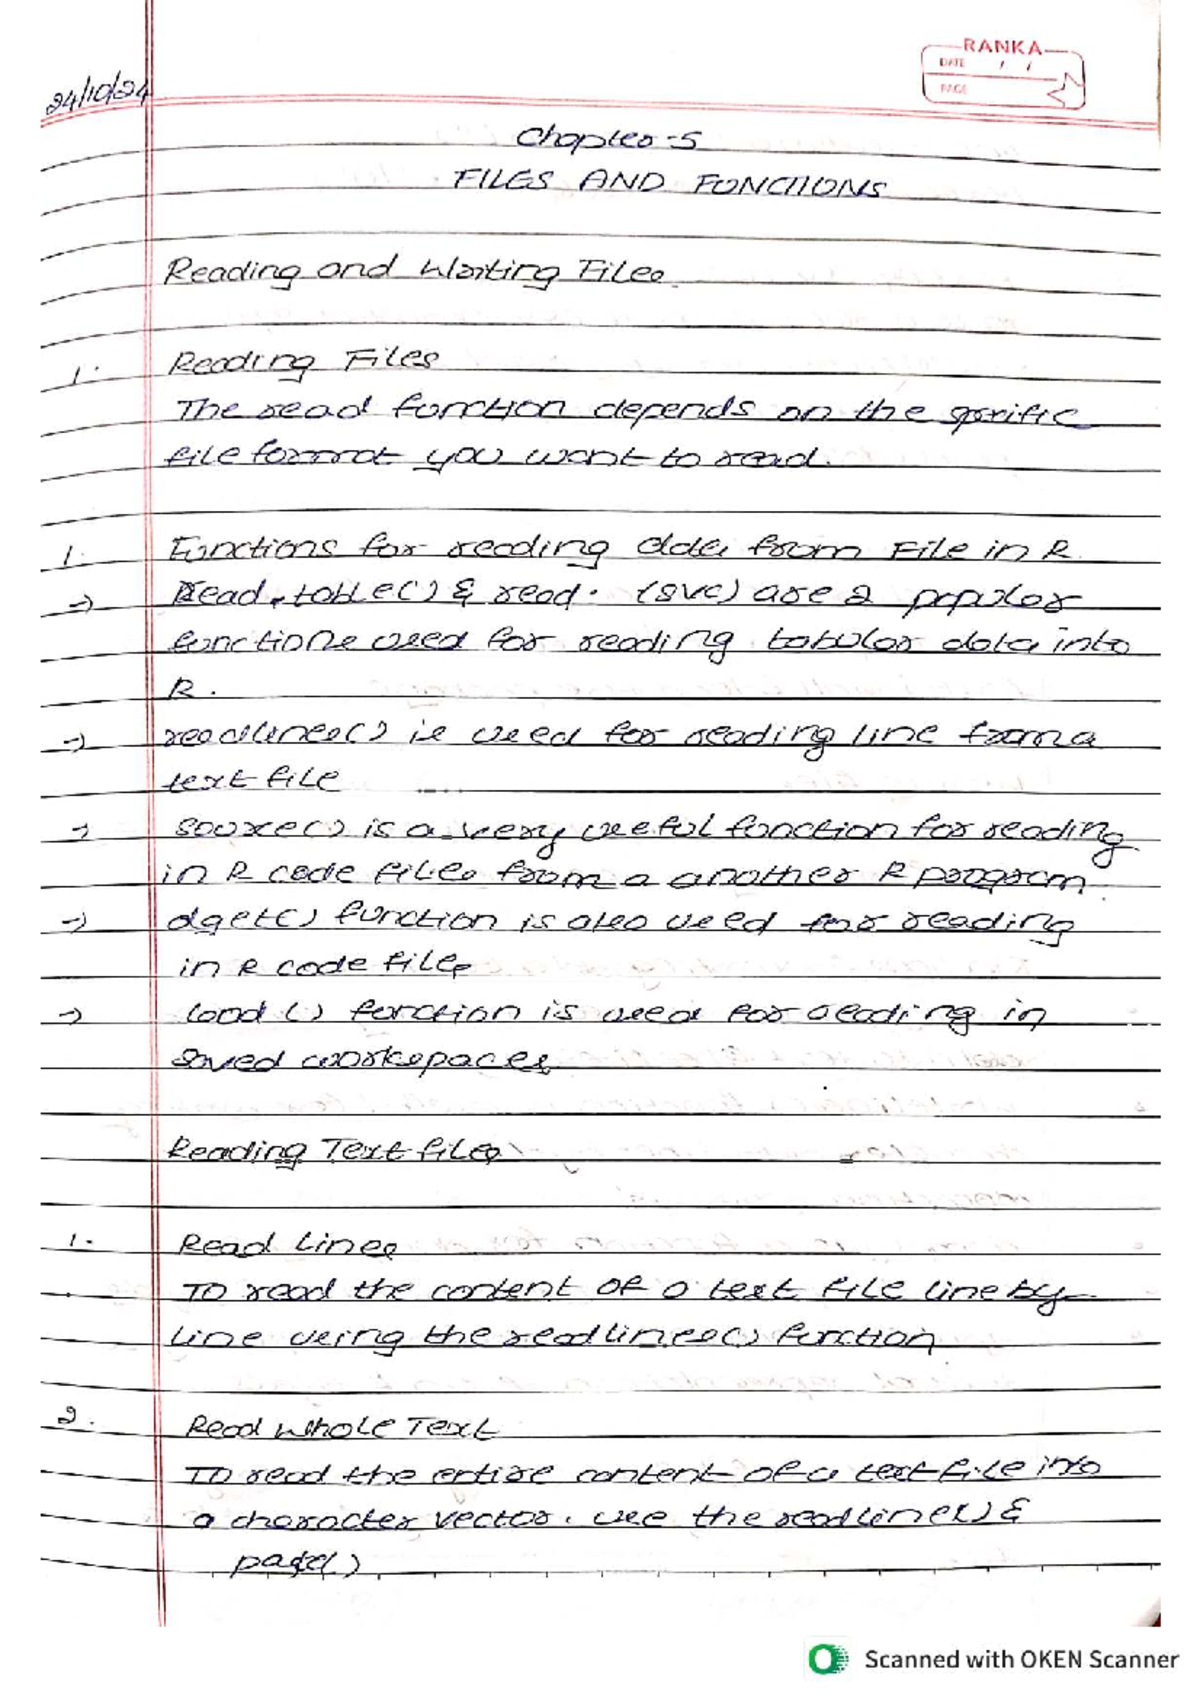 RANKA
DATE / /
PAGE
24/10/24
Chapter-5
FILES AND FUNCTIONS
Reading and Writing Files
1. Reading Files
The read function depends on the specific
file format you want to read.
1. Functions for reading data from File in R
=> Read.table() & read. (svc) are 2 popular
functions used for reading tabular data into
R.
=> readlines() is used for reading line from a
text file
=> source() is a very useful function for reading
in R code files from a another R program
=> dget() function is also used for reading
in R code files
=> load () function is used for reading in
saved workspaces
Reading Text files
1. Read Lines
To read the content of a text file line by
line using the readlines() function
2. Read Whole Text
To read the entire content of a text file into
a character vector. use the readline() &
paste()
Scanned with OKEN Scanner